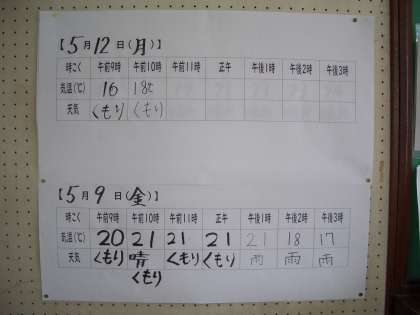 【5月12日(月)】
時こく 午前9時 午前10時 午前11時 正午 午後1時 午後2時 午後3時
気温(℃) 16 18℃
天気 くもり くもり
【5月9日(金)】
時こく 午前9時 午前10時 午前11時 正午 午後1時 午後2時 午後3時
気温(℃) 20 21 21 21 21 18 17
天気 くもり 晴 くもり くもり 雨 雨 雨
くもり